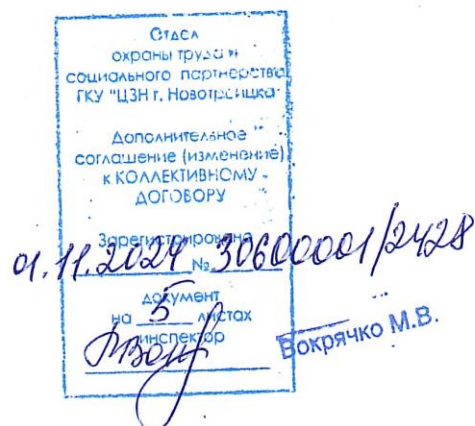 Отдел
охраны труда и
социального партнерства
ГКУ "ЦЗН г. Новотроицка"
Дополнительное
соглашение (изменение)
к КОЛЛЕКТИВНОМУ
ДОГОВОРУ
Зарегистрировано
01.11.2024 № 30600001/2428
документ
на 5 листах
инспектор
Вокрячко М.В.